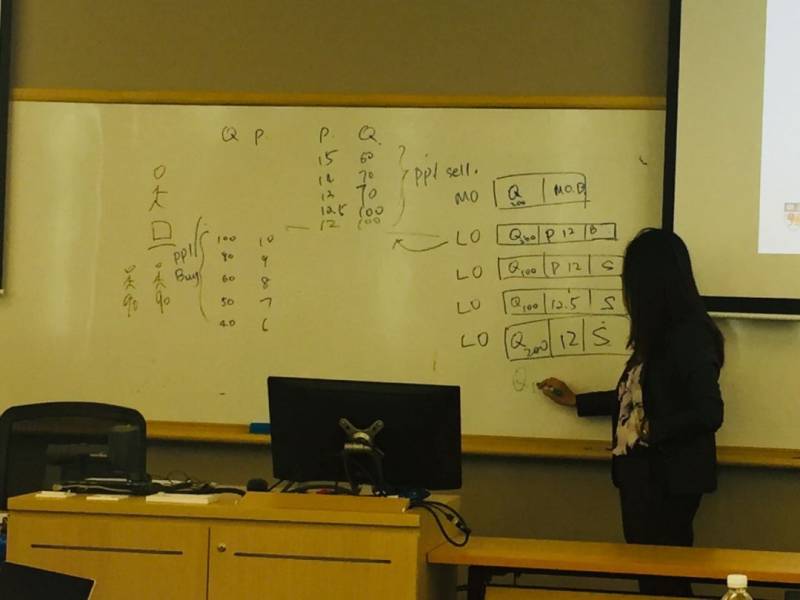 Q P.
P. Q.
15 60
14 70
13 70
12.5 100
12 100
ppl sell.
ppl
Buy
100 10
90 9
60 8
50 7
40 6
90 90
MO Q 200 M.O. B
LO Q 200 P 12 B
LO Q 100 P 12 S
LO Q 100 12.5 S
LO Q 200 12 S
Q